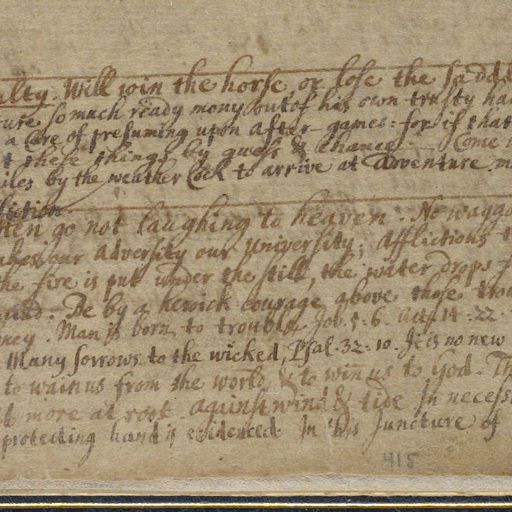 alty. Will win the horse or lose the sadd
ture so much ready mony out of his own trusty ha
a Care of presuming upon after-games: for if that
these things by guess & chance — Come
iles by the weather Cock to arrive at adventure. m
fliction
then go not laughing to heaven. No waggo
our Adversity our university; Afflictions
the fire is put under the still, the water drops f
Be by a heroick courage above those trou
ney. Man is born to trouble Job. 5. 6. Acts 14. 22.
Many sorrows to the wicked, Psal. 32. 10. It is no new
to wain us from the world, & to win us to God. Th
more at root against wind & tide In necess
protecting hand is evidenced. In this Juncture of
415